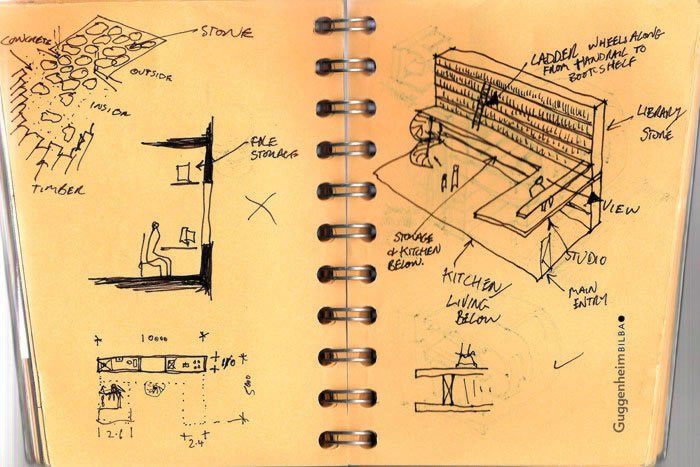 CONCRETE
STONE
OUTSIDE
INSIDE
TIMBER
FILE
STORAGE
10000
5000
2.6
2.4
LADDER WHEELS ALONG
FROM HANDRAIL TO
BOOKSHELF
LIBRARY
STONE
VIEW
STORAGE
& KITCHEN
BELOW.
STUDIO
KITCHEN/
LIVING
BELOW
MAIN
ENTRY
GuggenheimBILBAO